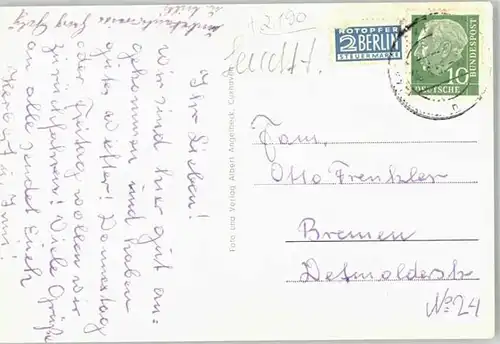 + 2190
NOTOPFER
2 BERLIN
STEUERMARKE
10
DEUTSCHE
BUNDESPOST
Ihr Lieben!
Wir sind hier gut an=
gekommen und haben
gutes Wetter! Donnerstag
oder Freitag wollen wir
zurückfahren! Viele Grüße
an alle sendet Euch
Foto und Verlag Albert Angelbeck, Cuxhaven
Fam.
Otto Frenkler
Bremen
Detmolderstr
No 24